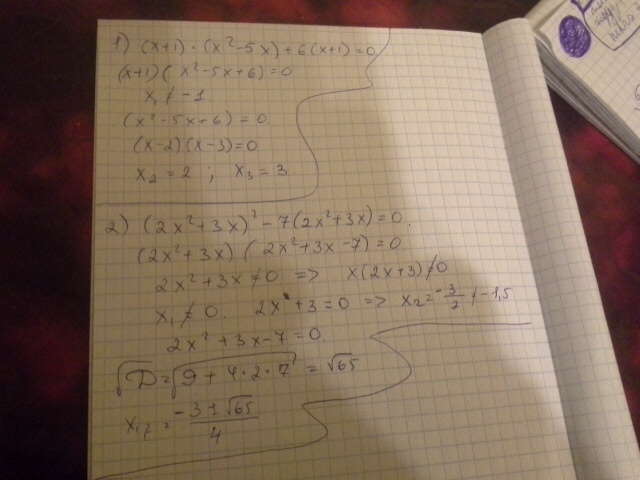 1) (x+1)·(x²-5x)+6(x+1)=0
(x+1)(x²-5x+6)=0
x₁≠-1
(x²-5x+6)=0
(x-2)(x-3)=0
x₂=2 ; x₃=3
2) (2x²+3x)²-7(2x²+3x)=0.
(2x²+3x)(2x²+3x-7)=0
2x²+3x≠0 => x(2x+3)≠0
x₁≠0. 2x+3=0 => x₂=-3/2≠-1,5
2x²+3x-7=0.
√D=√9+4·2·7=√65
x₁,₂=(-3±√65)/4